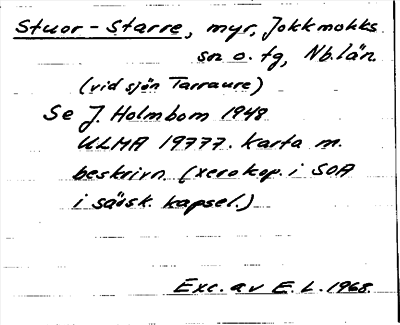 Stuor-Starre, myr, Jokkmokks
sn o. tg, Nb. län.
(vid sjön Tarraure)
Se J. Holmbom 1948
ULMA 19777. Karta m.
beskrivn. (xerokop. i SOA
i särsk. kapsel.)
Exc. av E. L. 1968.